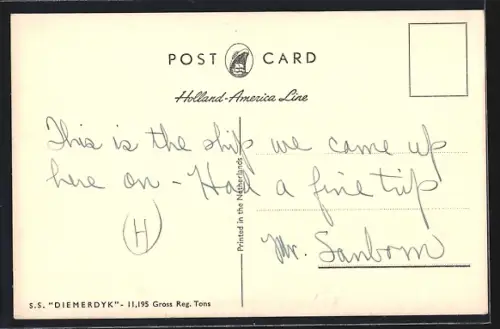 POST CARD
Holland-America Line
This is the ship we came up
here on - Had a fine trip
Mr. Sanborn
(H)
Printed in the Netherlands
S.S. "DIEMERDYK" - 11,195 Gross Reg. Tons